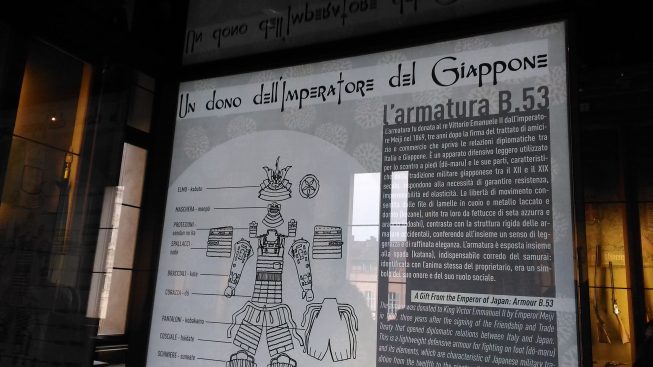 Un dono dell'Imperatore del Giappone
L'armatura B.53
L'armatura fu donata al re Vittorio Emanuele II dall'imperato-
re Meiji nel 1869, tre anni dopo la firma del trattato di amici-
zia e commercio che apriva le relazioni diplomatiche tra
Italia e Giappone. È un apparato difensivo leggero utilizzato
per lo scontro a piedi (dō-maru) e le sue parti, caratteristi-
che della tradizione militare giapponese tra il XII e il XIX
secolo, rispondono alla necessità di garantire resistenza,
impermeabilità ed elasticità. La libertà di movimento con-
sentita dalle file di lamelle in cuoio o metallo laccato e
dorato (kozane), unite tra loro da fettucce di seta azzurra e
arancio (odoshi), contrasta con la struttura rigida delle ar-
mature occidentali, conferendo all'insieme un senso di leg-
gerezza e di raffinata eleganza. L'armatura è esposta insieme
alla spada (katana), indispensabile corredo del samurai:
identificata con l'anima stessa del proprietario, era un sim-
bolo del suo onore e del suo ruolo sociale.
ELMO - kabuto
MASCHERA - menpō
PROTEGGI
SPALLACCI
sode
BRACCIALI - kote
CORAZZA - dō
PANTALONI - kobakama
COSCIALE - haidate
SCHINIERE - suneate
A Gift From the Emperor of Japan: Armour B.53
The armour was donated to King Victor Emmanuel II by Emperor Meiji
in 1869, three years after the signing of the Friendship and Trade
Treaty that opened diplomatic relations between Italy and Japan.
This is a lightweight defensive armour for fighting on foot (dō-maru)
and its elements, which are characteristic of Japanese military tra-
dition from the twelfth to the